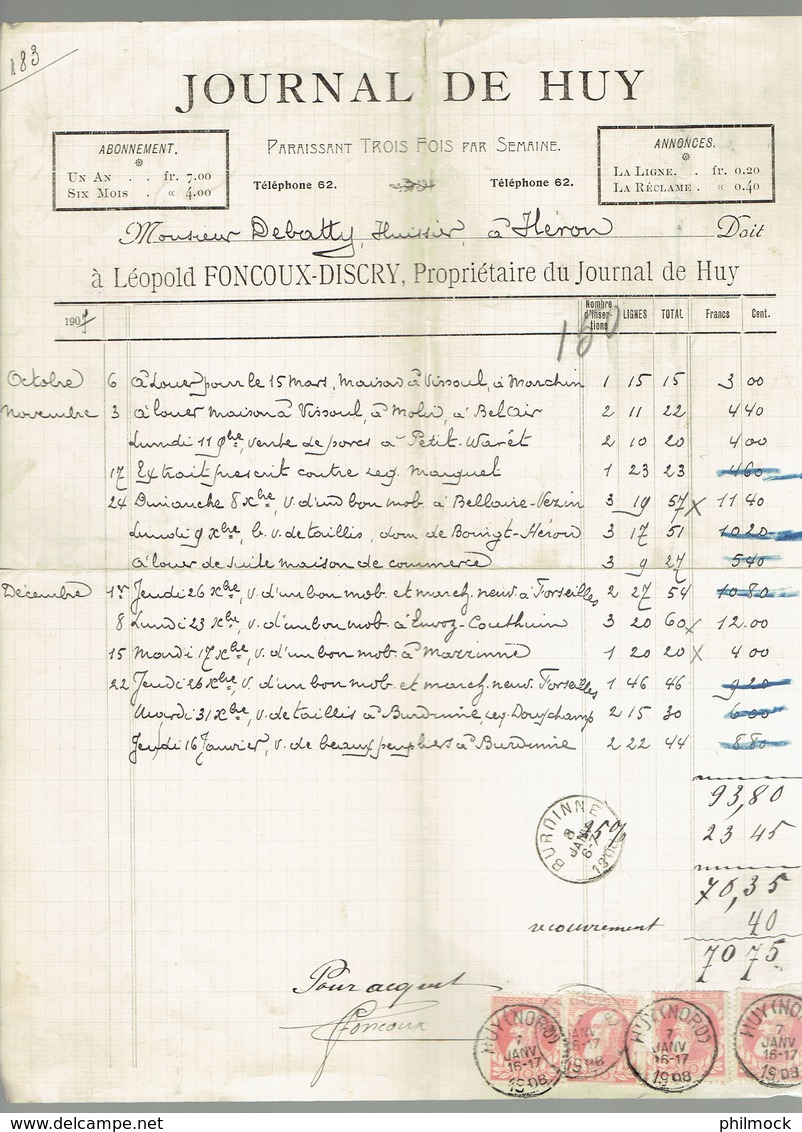 183
JOURNAL DE HUY
ABONNEMENT.
UN AN . . fr. 7.00
SIX MOIS . « 4.00
PARAISSANT TROIS FOIS PAR SEMAINE.
Téléphone 62. Téléphone 62.
ANNONCES.
LA LIGNE. . fr. 0.20
LA RÉCLAME . « 0.40
Monsieur Debatty, Huissier, à Héron Doit
à Léopold FONCOUX-DISCRY, Propriétaire du Journal de Huy
1907 Nombre d'Insertions LIGNES TOTAL Francs Cent.
Octobre 6 à Louer pour le 15 Mars, Maison à Vissoul, à Marchin 1 15 15 3 00
Novembre 3 à louer maison à Vissoul, à Moha, à Belair 2 11 22 4 40
Lundi 11 9bre, vente de porcs à Petit-Warêt 2 10 20 4 00
17 Extrait prescrit contre Marguet 1 23 23 4 60
24 Dimanche 8 Xbre, v. d'un bon mob. à Bellaire-Vezin 3 19 57 X 11 40
Lundi 9 Xbre, b. v. de taillis, dom. de Héron 3 17 51 10 20
à louer de suite maison de commerce 3 9 27 5 40
Décembre 1er Jeudi 26 Xbre, v. d'un bon mob. et march. neuv. à Forseilles 2 27 54 10 80
8 Lundi 23 Xbre, v. d'un bon mob. à Envoz-Couthuin 3 20 60 X 12.00
15 Mardi 17 Xbre, v. d'un bon mob. à Marsinne 1 20 20 X 4 00
22 Jeudi 26 Xbre, v. d'un bon mob. et march. neuv. Forseilles 1 46 46 9 20
Mardi 31 Xbre, v. de taillis à Burdinne, 2 15 30 6 00
Jeudi 16 Janvier, v. de beaux peupliers à Burdinne 2 22 44 8 80
93,80
BURDINNE 8 JANV 6-7 1908
25% 23 45
70,35
recouvrement 40
70 75
Pour acquit
Foncoux
HUY (NORD) 7 JANV 16-17 1908
JANV 16-17 1908
HUY (NORD) 7 JANV 16-17 1908
HUY (NO 7 JANV 16-17 1908
philmock